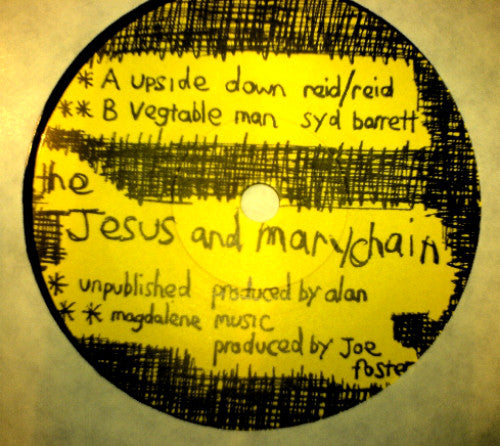 * A upside down reid/reid
** B Vegtable man syd barrett
the
Jesus and mary chain
* unpublished produced by alan
** magdalene music
produced by Joe
foster